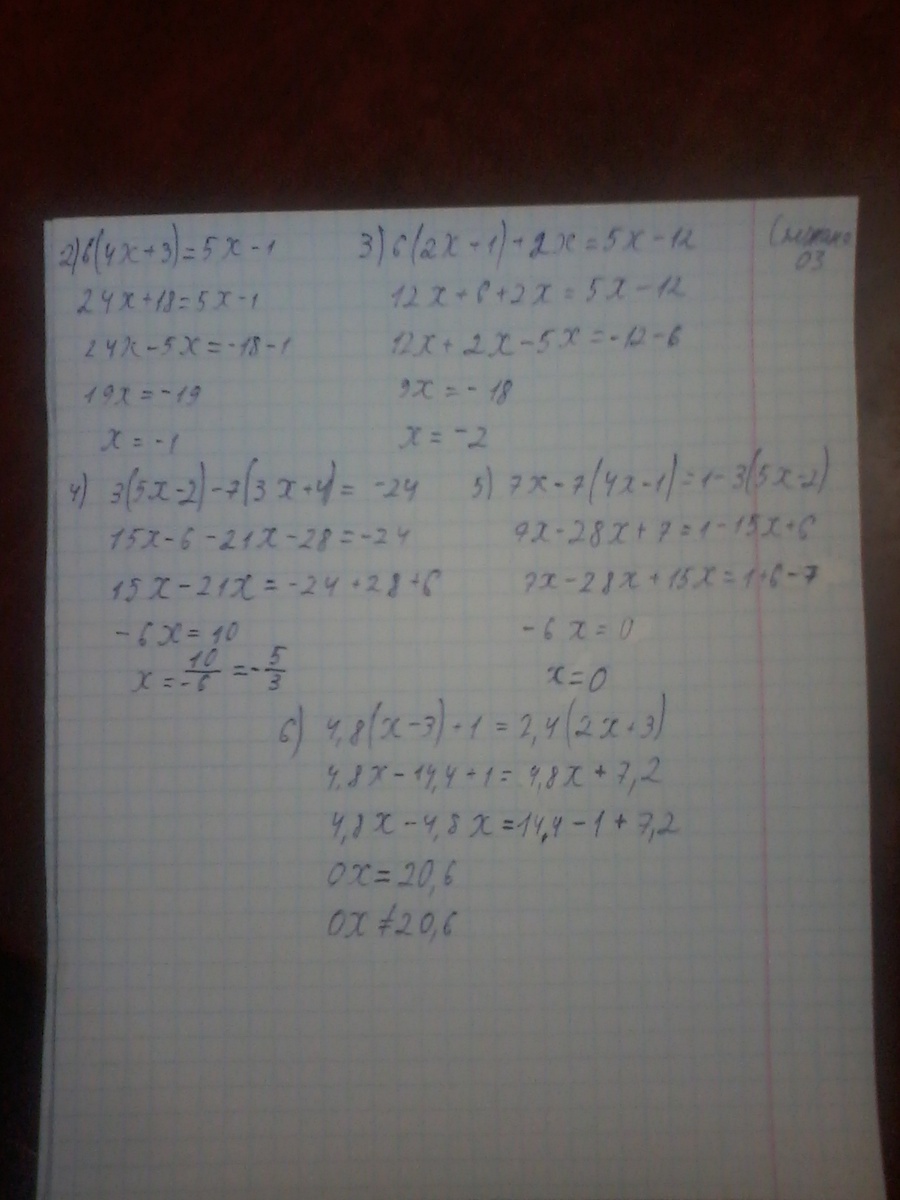 2) 6(4x+3)=5x-1
24x+18=5x-1
24x-5x=-18-1
19x=-19
x=-1
3) 6(2x+1)+2x=5x-12
12x+6+2x=5x-12
12x+2x-5x=-12-6
9x=-18
x=-2
03
4) 3(5x-2)-7(3x+4)= -24
15x-6-21x-28=-24
15x-21x=-24+28+6
-6x=10
x=10/-6=-5/3
5) 7x-7(4x-1)=1-3(5x-2)
7x-28x+7=1-15x+6
7x-28x+15x=1+6-7
-6x=0
x=0
6) 4,8(x-3)+1=2,4(2x+3)
4,8x-14,4+1=4,8x+7,2
4,8x-4,8x=14,4-1+7,2
0x=20,6
0x≠20,6